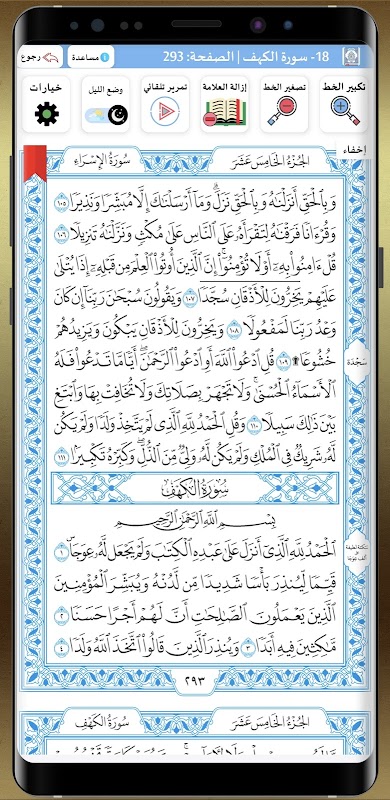 18- سورة الكهف | الصفحة: 293
مساعدة
رجوع
تكبير الخط
تصغير الخط
إزالة العلامة
تمرير تلقائي
وضع الليل
خيارات
إخفاء
الجُزْءُ الخَامِسَ عَشَرَ
سُورَةُ الإِسْرَاءِ
وَبِالْحَقِّ أَنزَلْنَٰهُ وَبِالْحَقِّ نَزَلَ ۗ وَمَا أَرْسَلْنَٰكَ إِلَّا مُبَشِّرًا وَنَذِيرًا ١٠٥
وَقُرْءَانًا فَرَقْنَٰهُ لِتَقْرَأَهُ عَلَى النَّاسِ عَلَىٰ مُكْثٍ وَنَزَّلْنَٰهُ تَنزِيلًا ١٠٦
قُلْ ءَامِنُوا بِهِ أَوْ لَا تُؤْمِنُوا ۚ إِنَّ الَّذِينَ أُوتُوا الْعِلْمَ مِن قَبْلِهِ إِذَا يُتْلَىٰ
عَلَيْهِمْ يَخِرُّونَ لِلْأَذْقَانِ سُجَّدًا ١٠٧ وَيَقُولُونَ سُبْحَٰنَ رَبِّنَا إِن كَانَ
وَعْدُ رَبِّنَا لَمَفْعُولًا ١٠٨ وَيَخِرُّونَ لِلْأَذْقَانِ يَبْكُونَ وَيَزِيدُهُمْ
خُشُوعًا ۩ ١٠٩ قُلِ ادْعُوا اللَّهَ أَوِ ادْعُوا الرَّحْمَٰنَ ۖ أَيًّا مَّا تَدْعُوا فَلَهُ
سَجْدَة
الْأَسْمَاءُ الْحُسْنَىٰ ۚ وَلَا تَجْهَرْ بِصَلَاتِكَ وَلَا تُخَافِتْ بِهَا وَابْتَغِ
بَيْنَ ذَٰلِكَ سَبِيلًا ١١٠ وَقُلِ الْحَمْدُ لِلَّهِ الَّذِي لَمْ يَتَّخِذْ وَلَدًا وَلَمْ يَكُن
لَّهُ شَرِيكٌ فِي الْمُلْكِ وَلَمْ يَكُن لَّهُ وَلِيٌّ مِّنَ الذُّلِّ ۖ وَكَبِّرْهُ تَكْبِيرًا ١١١
سُورَةُ الكَهْفِ
بِسْمِ اللَّهِ الرَّحْمَٰنِ الرَّحِيمِ
الْحَمْدُ لِلَّهِ الَّذِي أَنزَلَ عَلَىٰ عَبْدِهِ الْكِتَٰبَ وَلَمْ يَجْعَل لَّهُ عِوَجًا ١
قَيِّمًا لِّيُنذِرَ بَأْسًا شَدِيدًا مِّن لَّدُنْهُ وَيُبَشِّرَ الْمُؤْمِنِينَ
الَّذِينَ يَعْمَلُونَ الصَّٰلِحَٰتِ أَنَّ لَهُمْ أَجْرًا حَسَنًا ٢
مَّٰكِثِينَ فِيهِ أَبَدًا ٣ وَيُنذِرَ الَّذِينَ قَالُوا اتَّخَذَ اللَّهُ وَلَدًا ٤
٢٩٣
الجُزْءُ الخَامِسَ عَشَرَ
سُورَةُ الكَهْفِ